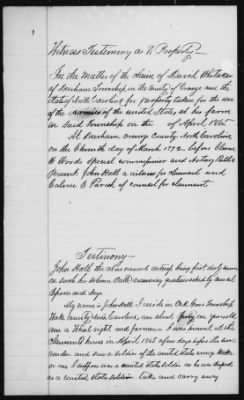 Witness Testimony as to Property
In the matter of the claim of David Whitaker
of Durham Township, in the County of Orange and the
State of North Carolina for property taken for the use
of the armies of the United States at his farm
in said Township on the of April 1865
At Durham Orange County North Carolina
on the day of March 1872 before
W Woods Special Commissioner and Notary Public
present John Hall a witness for claimant and
Calvin E Parish of counsel for claimant
Testimony
John Hall the above named witness being first duly sworn
on such his solemn oath
deposes and says
My name is John Hall I reside in Oak Grove Township
Wake County North Carolina, am about forty years old
am a and farmer I was present at the
claimants house in April 1865 after days before the
and saw a soldier of the United States army
or one I suppose was a United States soldier as he was dressed
as a United States soldier take and carry away